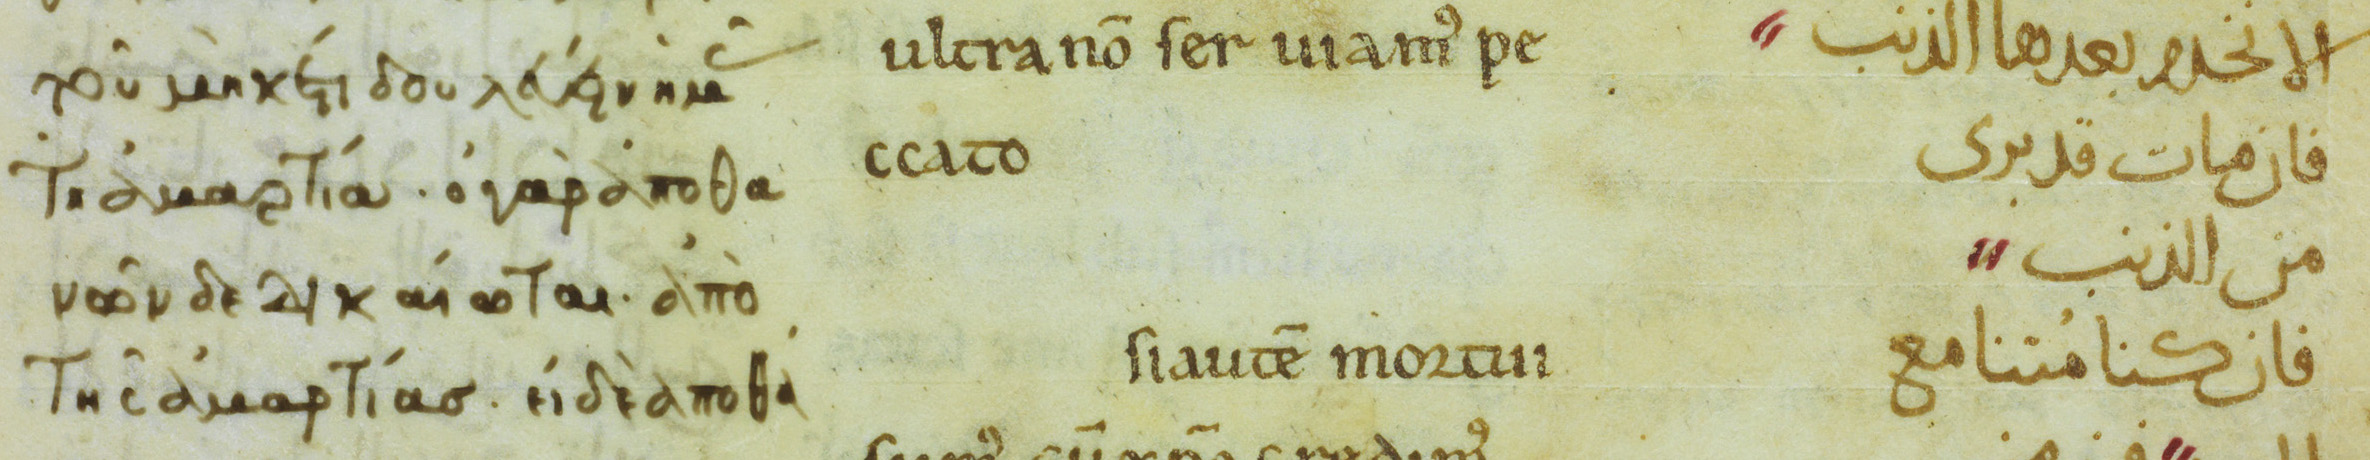 του μὴκέτι δουλεύειν ἡμᾶς
τῆ ἁμαρτία · ὁ γὰρ ἀποθα
νὼν δεδικαίωται · ἀπὸ
της ἁμαρτίας · εἰ δὲ ἀποθά
ultra nō ser uiamꝰ pe
ccato
si autē mortui
sumꝰ cū credimꝰ
الا نخدم بعدها الذنب
فان مات قد برى
من الذنب
فان كنا مُتنا مع